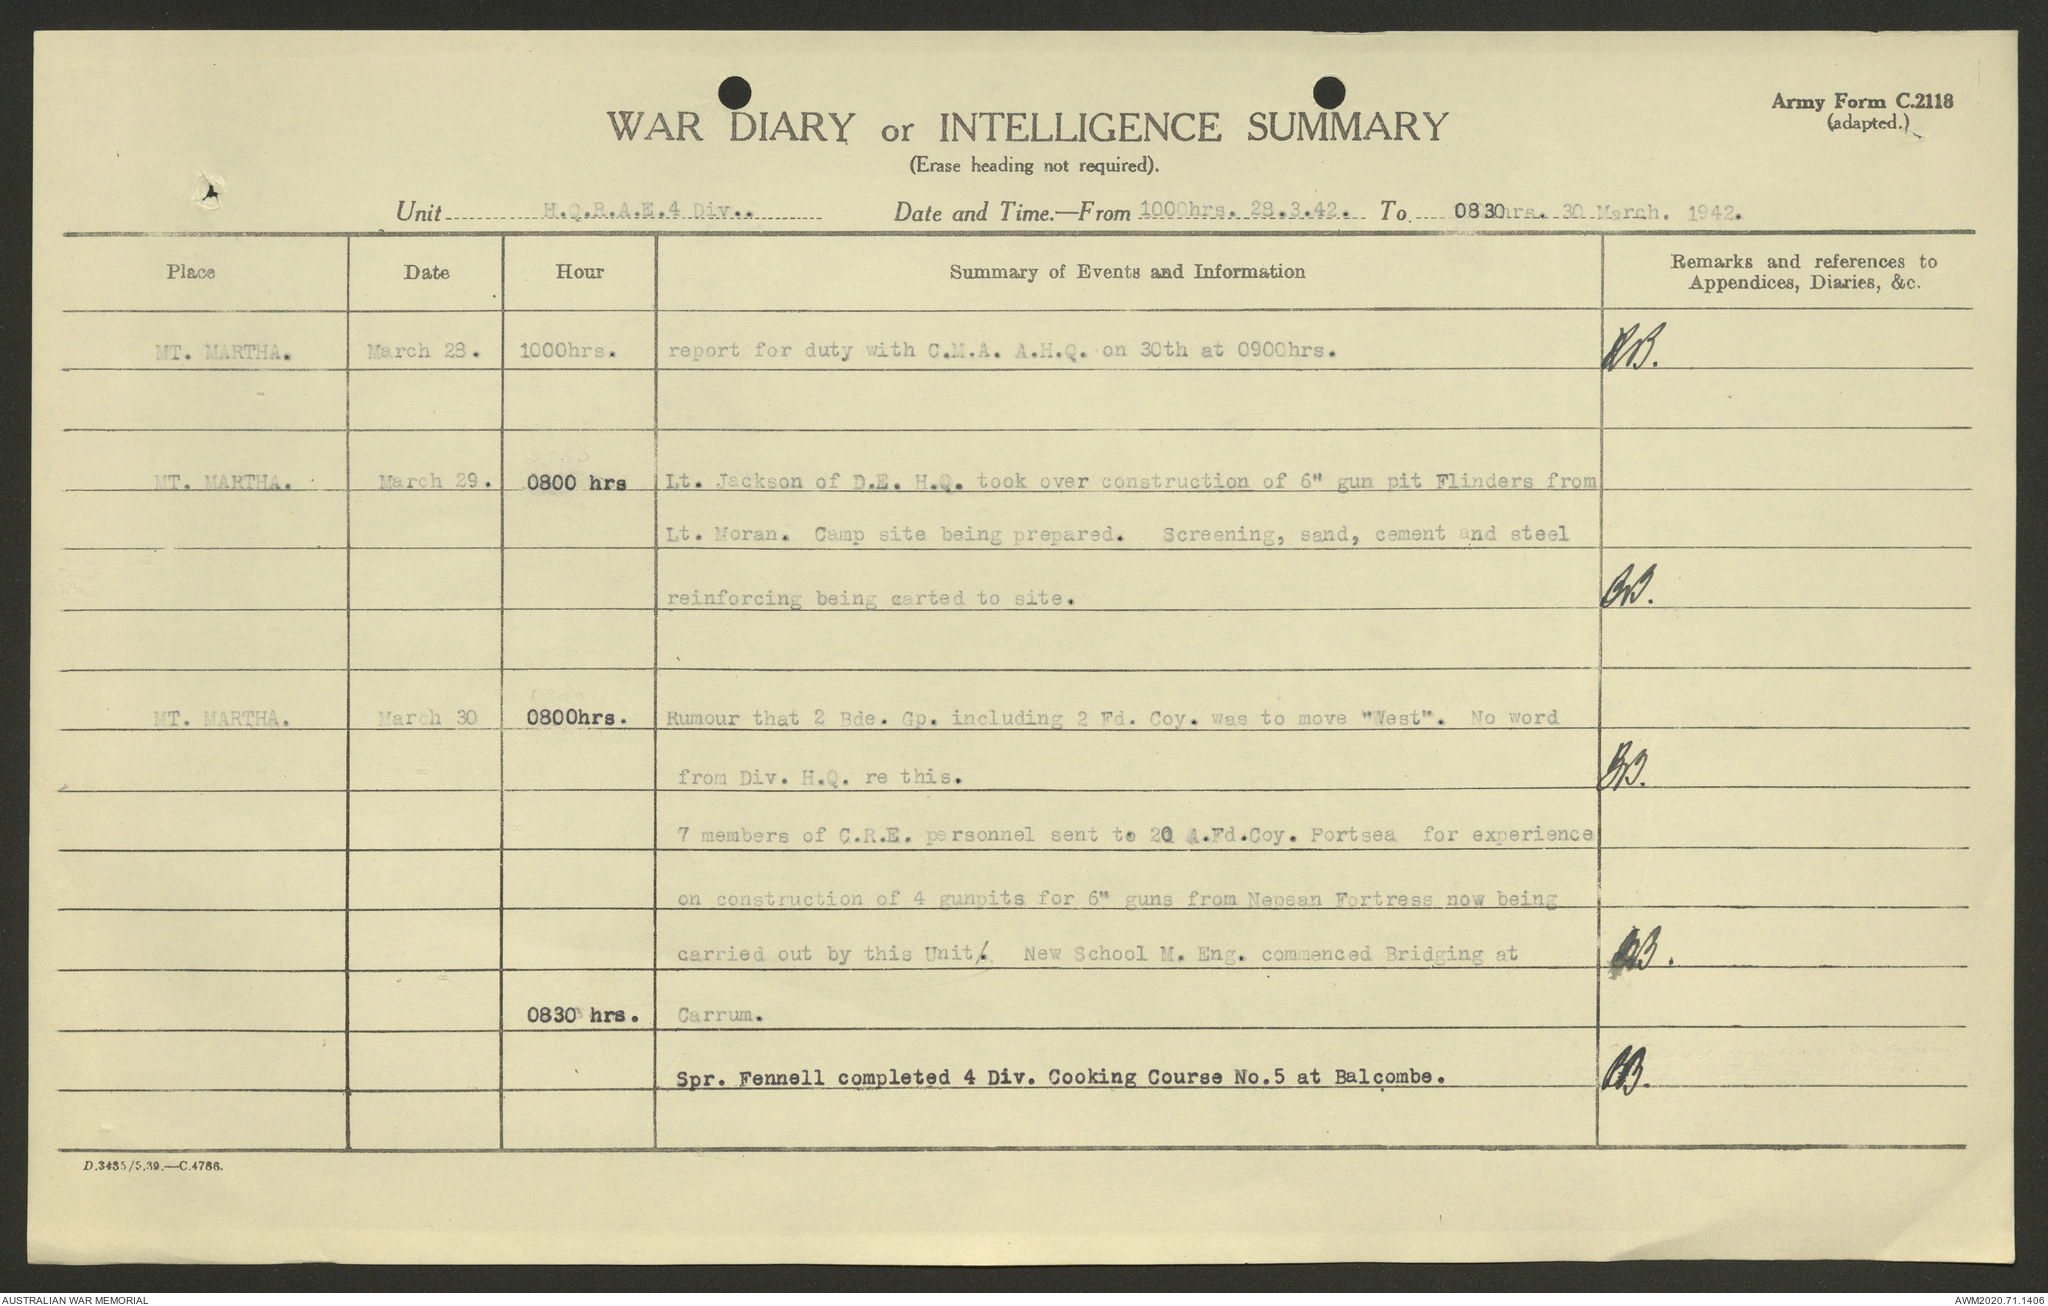 Army Form C.2118
(adapted.)
WAR DIARY or INTELLIGENCE SUMMARY
(Erase heading not required).
Unit H.Q.R.A.E.4 Div.. Date and Time.—From 1000hrs. 28.3.42. To 0830hrs. 30 March. 1942.
Place Date Hour Summary of Events and Information Remarks and references to
Appendices, Diaries, &c.
MT. MARTHA. March 28. 1000hrs. report for duty with C.M.A. A.H.Q. on 30th at 0900hrs.
MT. MARTHA. March 29. 0800 hrs Lt. Jackson of D.E. H.Q. took over construction of 6" gun pit Flinders from
Lt. Moran. Camp site being prepared. Screening, sand, cement and steel
reinforcing being carted to site.
MT. MARTHA. March 30 0800hrs. Rumour that 2 Bde. Gp. including 2 Fd. Coy. was to move "West". No word
from Div. H.Q. re this.
7 members of C.R.E. personnel sent to 20 A.Fd.Coy. Portsea for experience
on construction of 4 gunpits for 6" guns from Nepean Fortress now being
carried out by this Unit. New School M. Eng. commenced Bridging at
0830 hrs. Carrum.
Spr. Fennell completed 4 Div. Cooking Course No.5 at Balcombe.
D.3435/5.39.—C.4786.
AUSTRALIAN WAR MEMORIAL
AWM2020.71.1406